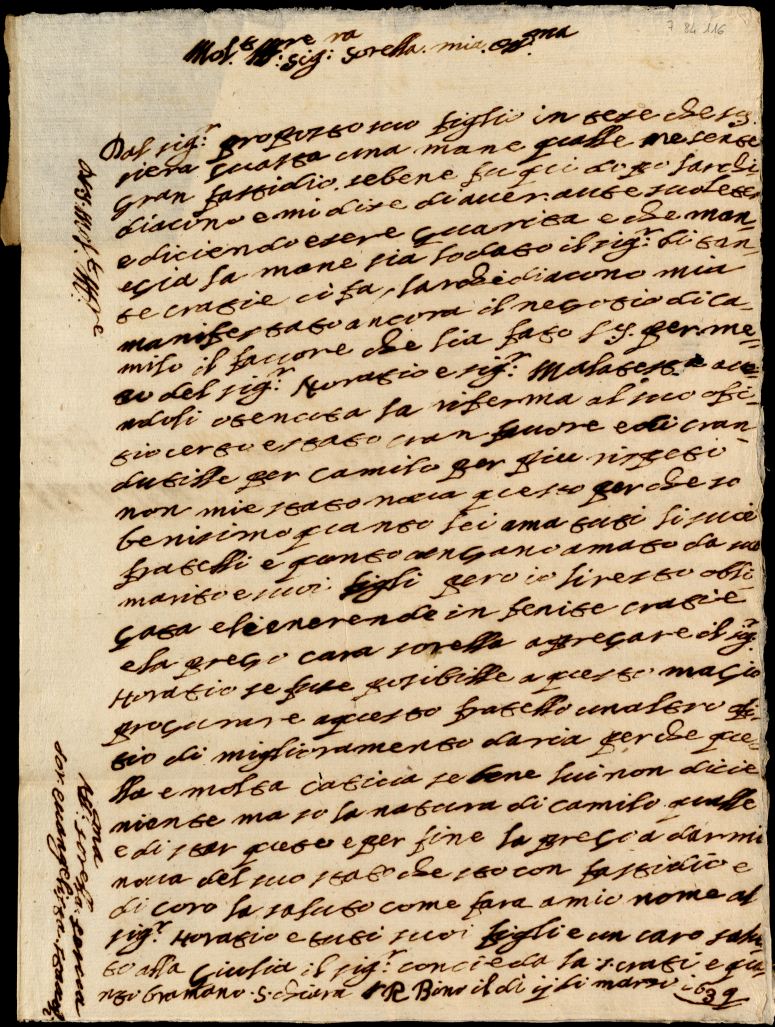 7 84 116
Mol.to Ill.re sig.ra sorella mia oss.ma
Dal sig.r proposto suo figlio in tese che V.S.
riera guasta una mane qualle ne sente
gran fastidio, sebene fu qui dopo l'archi
diacino e mi dise di aver aute sue letere
e diciendo esere guarita e che man-
egia la mane sia lodato il sig.r di tan-
te cratie ci fa, l'archidiacono mia
manifestato ancora il negotio di ca-
milo il favore che lia fato V.S. per me-
so del sig.r Horatio e sig.r Malatesta ave-
ndoli otenuta la riferma al suo ofi-
tio certo e stato cran favore e di cran-
dutille per camilo per piu rispeti
non mie stato nova questo perche so
benisimo quanto lei ama tuti li suoi
fratelli e quanto vengano amato da suo
marito e suoi figli pero io li resto obli-
gata e lienerende in fenite cratie
e la prego cara sorella a pregare il sig.r
Horatio se fuse posibille a questo magio
procurare a questo fratello un altro ofi-
tio di miglioramento daria perche que-
lla e molta catiua se bene lui non dicie
niente ma so la natura di camilo qualle
e di star queto e per fine la prego a darmi
nova del suo stato che sto con fastidio e
di coro la saluto come fara a mio nome al
sig.r Horatio e tuti suoi figli e un caro salu
to alla Giulia il sig.r concieda la s. crati e qua
nto bramano S. chiara
D V.S. Mol.to Ill.re
sorella
sor euangelista